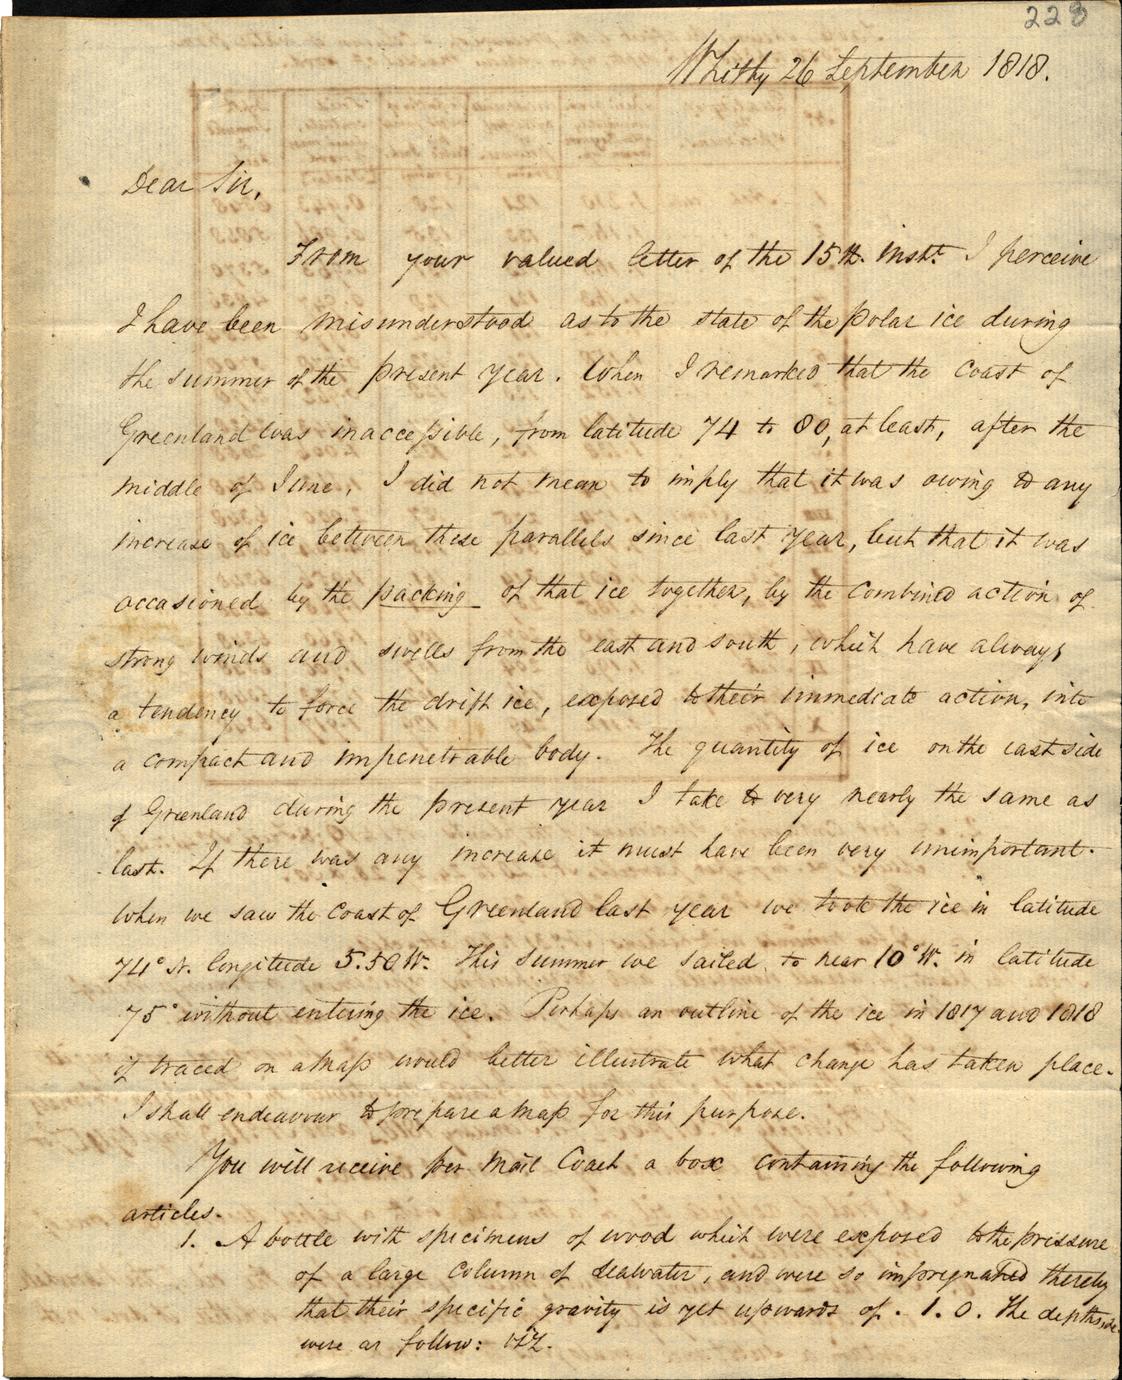 223
Whitby 26 September 1818.
Dear Sir,
From your valued letter of the 15th. Inst.t I perceive
I have been misunderstood as to the state of the polar ice during
the summer of the present year. When I remarked that the coast of
Greenland was inaccessible, from latitude 74 to 80, at least, after the
middle of June, I did not mean to imply that it was owing to any
increase of ice between these parallels since last year, but that it was
occasioned by the packing of that ice together, by the combined action of
strong winds and swells from the east and south, which have always
a tendency to force the drift ice, exposed to their immediate action, into
a compact and impenetrable body. The quantity of ice on the east side
of Greenland during the present year I take to very nearly the same as
last. If there was any increase it must have been very unimportant.
When we saw the coast of Greenland last year we took the ice in latitude
74° N. longitude 5.50 W. This summer we sailed to near 10° W. in latitude
75° without entering the ice. Perhaps an outline of the ice in 1817 and 1818
if traced on a map would better illustrate what change has taken place.
I shall endeavour to prepare a map for this purpose.
You will receive per Mail Coach a box containing the following
articles.
1. A bottle with specimens of wood which were exposed to the pressure
of a large column of seawater, and were so impregnated thereby
that their specific gravity is yet upwards of . 1. 0. The depths
were as follow: Viz.